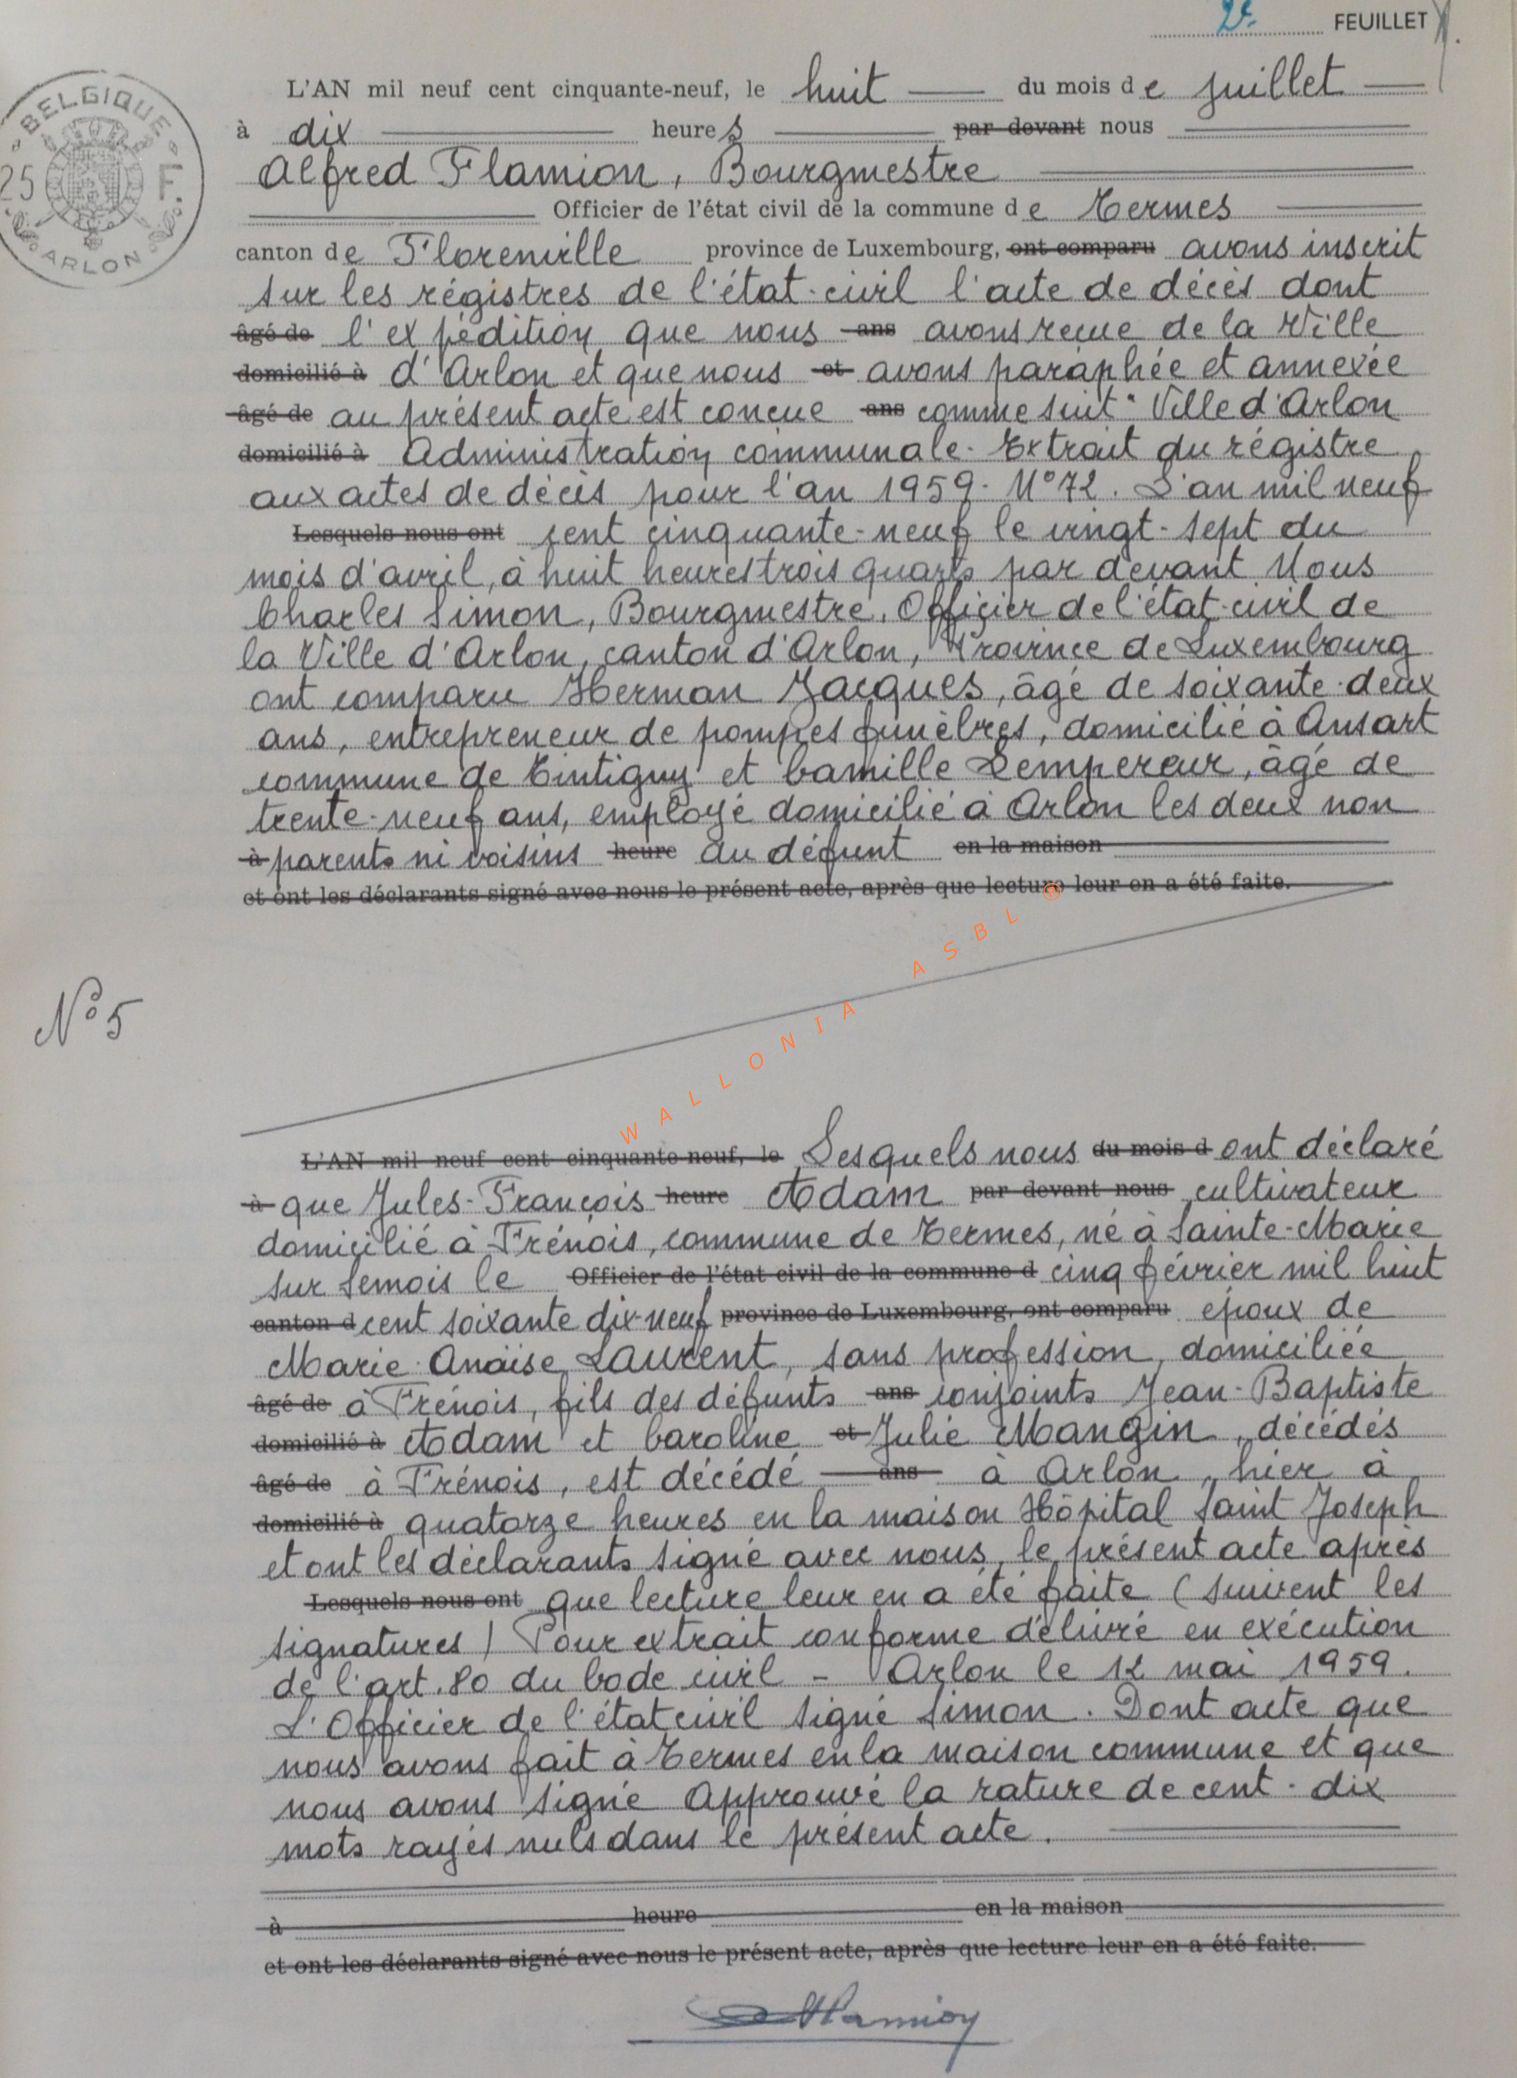 2e FEUILLET
BELGIQUE
25 F.
ARLON
L'AN mil neuf cent cinquante-neuf, le huit du mois de juillet
à dix heures par devant nous
Alfred Flamion, Bourgmestre
Officier de l'état civil de la commune de Termes
canton de Florenville province de Luxembourg, ont comparu avons inscrit
sur les régistres de l'état-civil l'acte de décès dont
âgé de l'expédition que nous ans avons recue de la Ville
domicilié à d'Arlon et que nous et avons paraphée et annexée
âgé de au présent acte est concue ans comme suit " Ville d'Arlon
domicilié à Administration communale - Extrait du régistre
aux actes de décès pour l'an 1959 - N° 72. L'an mil neuf
Lesquels nous ont cent cinquante-neuf le vingt-sept du
mois d'avril, à huit heures trois quarts par devant Nous
Charles Simon, Bourgmestre, Officier de l'état-civil de
la Ville d'Arlon, canton d'Arlon, Province de Luxembourg
ont comparu Herman Jacques, âgé de soixante-deux
ans, entrepreneur de pompes funèbres, domicilié à Ansart
commune de Tintigny et Camille Lempereur, âgé de
trente-neuf ans, employé domicilié à Arlon les deux non
à parents ni voisins heure du défunt en la maison
et ont les déclarants signé avec nous le présent acte, après que lecture leur en a été faite.
WALLONIA ASBL ®
N° 5
L'AN mil neuf cent cinquante-neuf, le Lesquels nous du mois d ont déclaré
à que Jules-François heure Adam par devant nous cultivateur
domicilié à Frénois, commune de Termes, né à Sainte-Marie
sur Semois le Officier de l'état civil de la commune d cinq février mil huit
canton d cent soixante dix-neuf province de Luxembourg, ont comparu époux de
Marie-Anaïse Laurent, sans profession, domiciliée
âgé de à Frénois, fils des défunts ans conjoints Jean-Baptiste
domicilié à Adam et Caroline et Julie Mangin, décédés
âgé de à Frénois, est décédé ans à Arlon, hier à
domicilié à quatorze heures en la maison Hôpital Saint Joseph
et ont les déclarants signé avec nous, le présent acte après
Lesquels nous ont que lecture leur en a été faite (suivent les
signatures) Pour extrait conforme délivré en exécution
de l'art. 80 du Code civil - Arlon le 12 mai 1959.
L'Officier de l'état civil signé Simon. Dont acte que
nous avons fait à Termes en la maison commune et que
nous avons signé Approuvé la rature de cent-dix
mots rayés nuls dans le présent acte.
à heure en la maison
et ont les déclarants signé avec nous le présent acte, après que lecture leur en a été faite.
Flamion